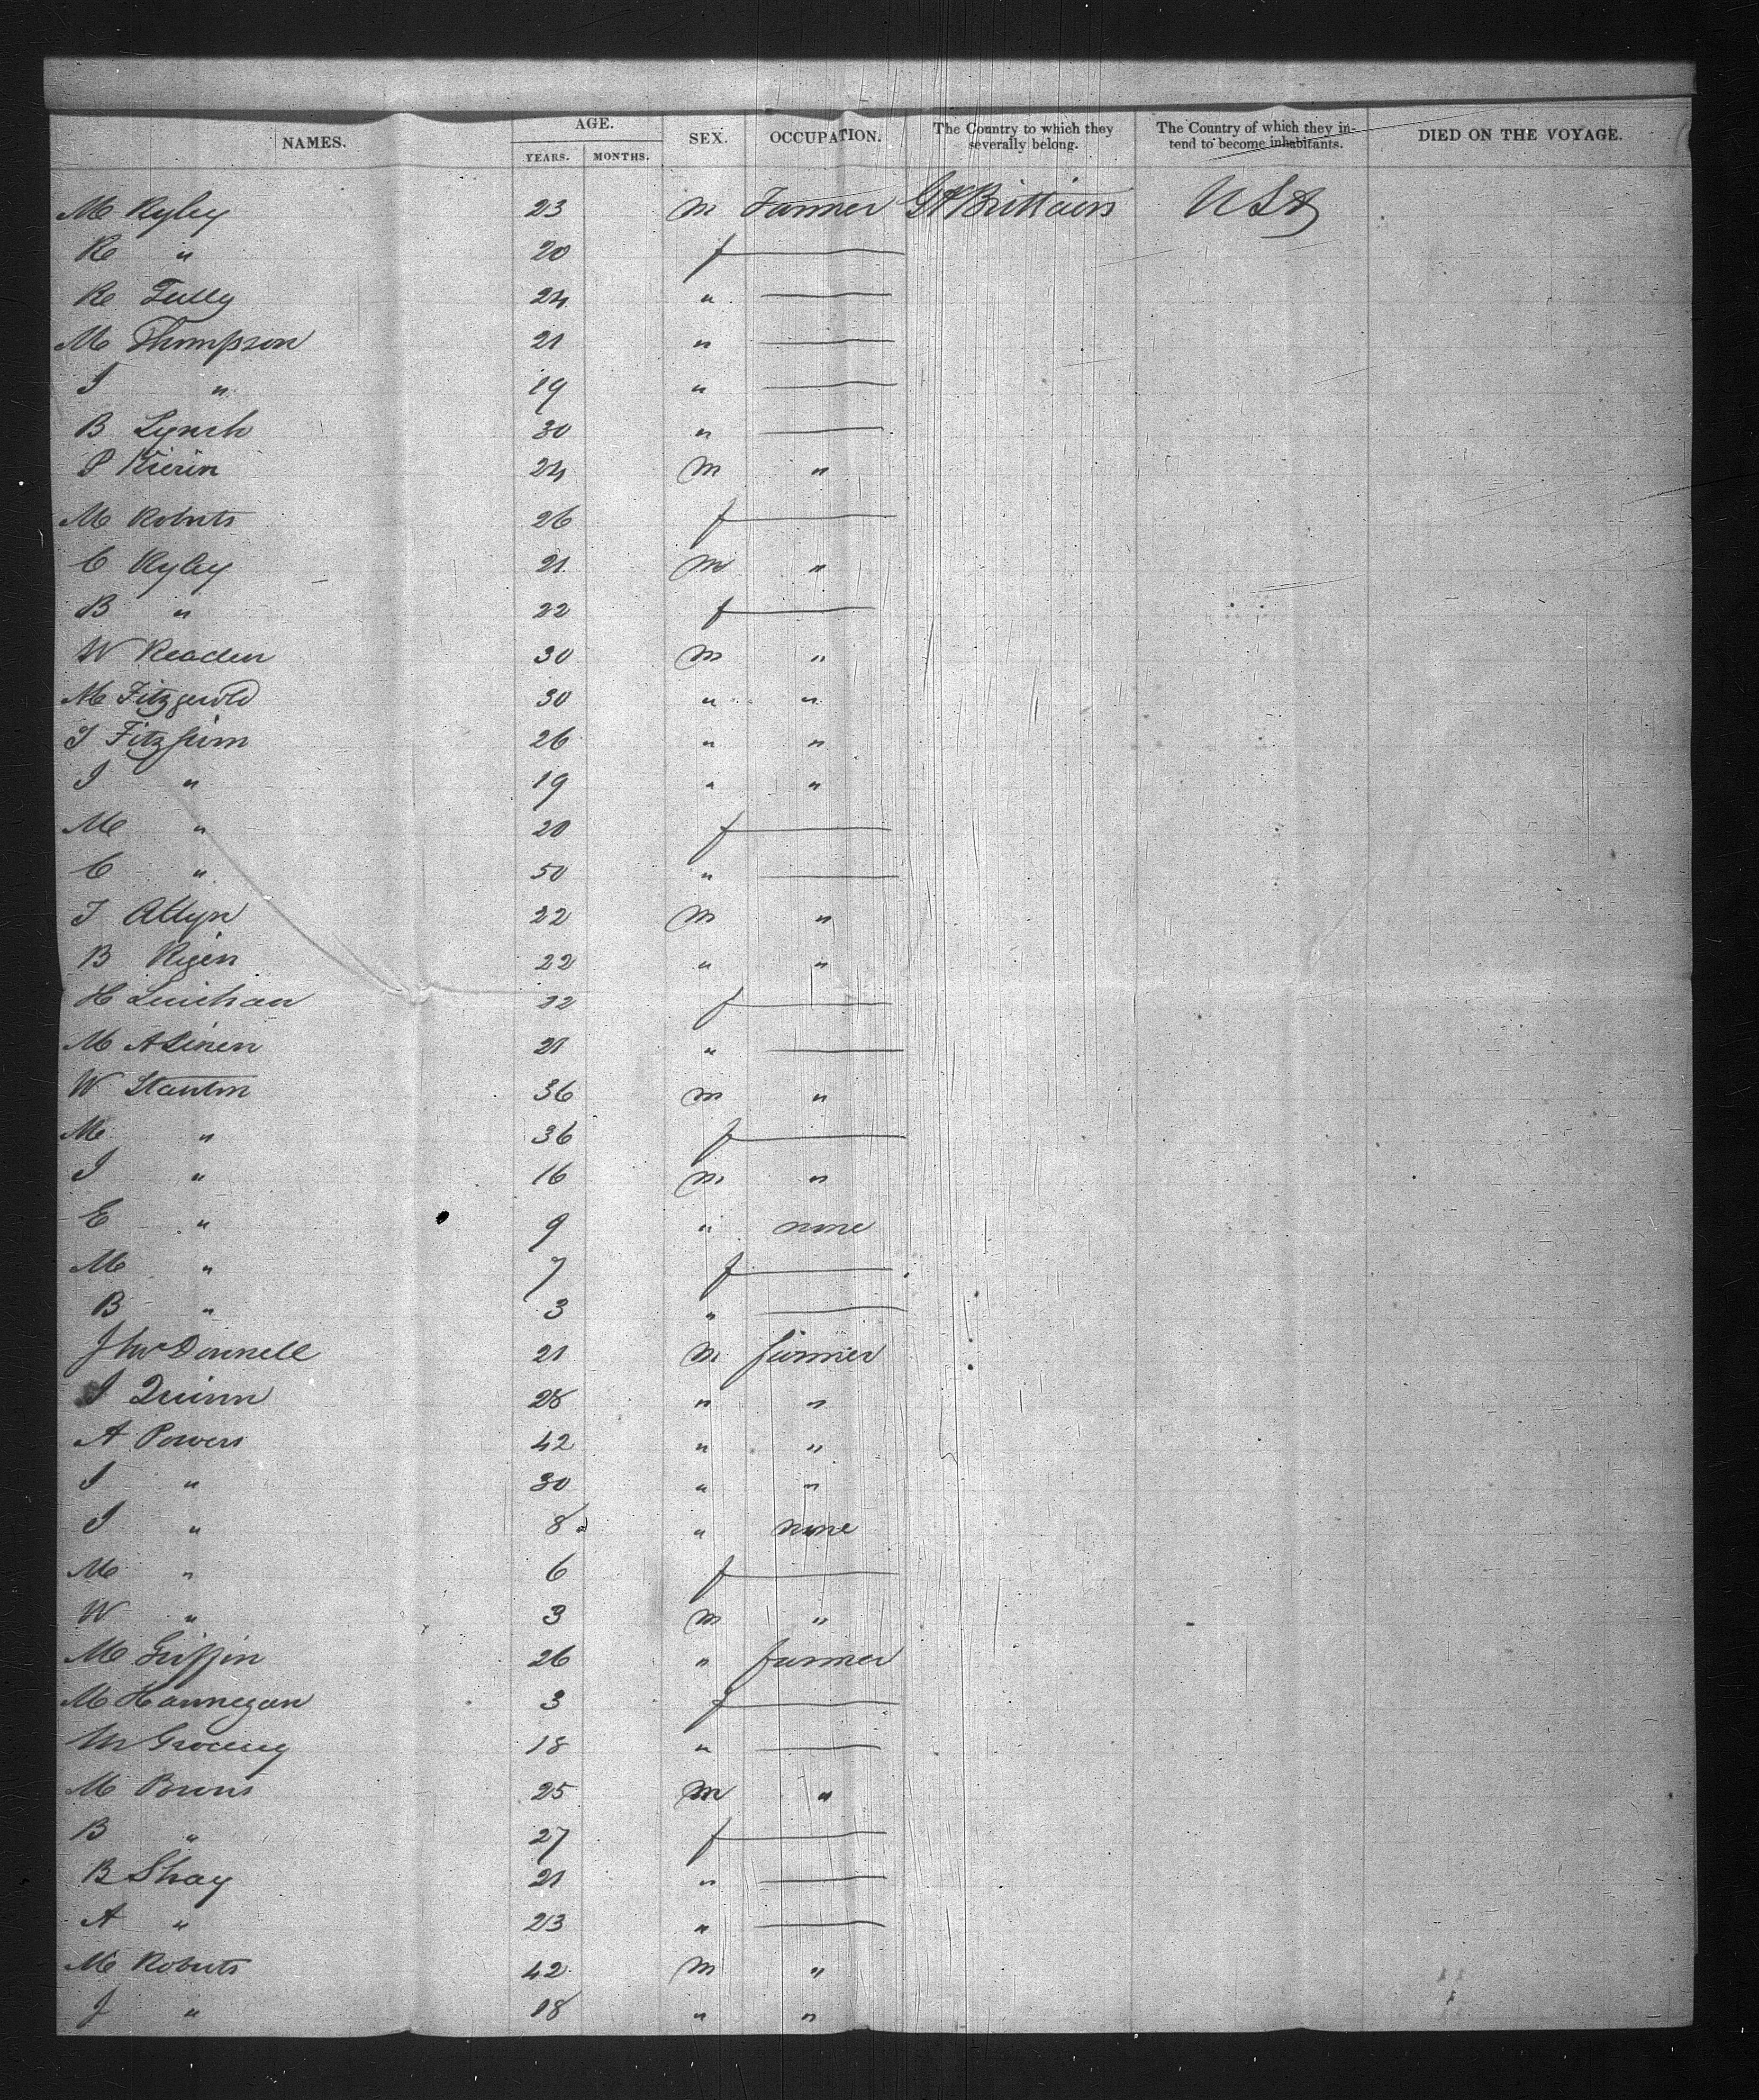 NAMES. AGE. SEX. OCCUPATION. The Country to which they severally belong. The Country of which they intend to become inhabitants. DIED ON THE VOYAGE.
YEARS. MONTHS.
M Ryley 23 m Farmer Gt Brittain USA
R " 20 f
R Tully 24 "
M Thompson 21 "
J " 19 "
B Lynch 30 "
P Kierin 24 m "
M Roberts 26 f
C Ryley 21 m "
B " 22 f
W Readen 30 m "
M Fitzgerold 30 " "
J Fitzsim 26 " "
J " 19 " "
M " 20 f
C " 50 "
J 22 m "
B 22 " "
H Linihan 22 f
M 21 "
W Stanton 36 m "
M " 36 f
J " 16 m "
E " 9 " none
M " 7 f
B " 3 "
J McDonnell 21 m farmer
J Quinn 28 " "
A Powers 42 " "
J " 30 " "
J " 8 " none
M " 6 f
W " 3 m "
M Griffin 26 " farmer
M Hannegan 3 f
M 18 "
M Burns 25 m "
B " 27 f
B Shay 21 "
A " 23 "
M Roberts 42 m "
J " 18 " "